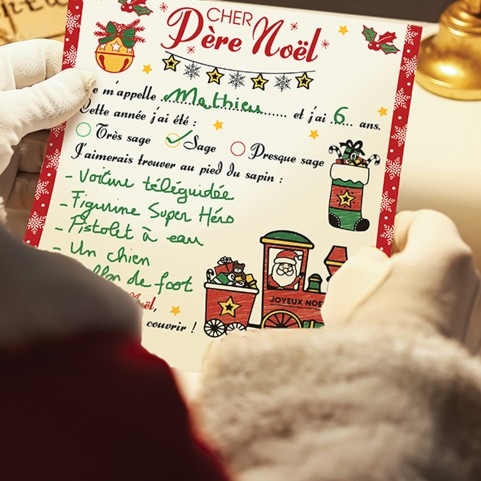 CHER
Père Noël
Je m'appelle Mathieu et j'ai 6 ans.
Cette année j'ai été :
Très sage Sage Presque sage
J'aimerais trouver au pied du sapin :
- Voiture téléguidée
- Figurine Super Héro
- Pistolet à eau
- Un chien
de foot
JOYEUX NOË
Noël,
couvrir !